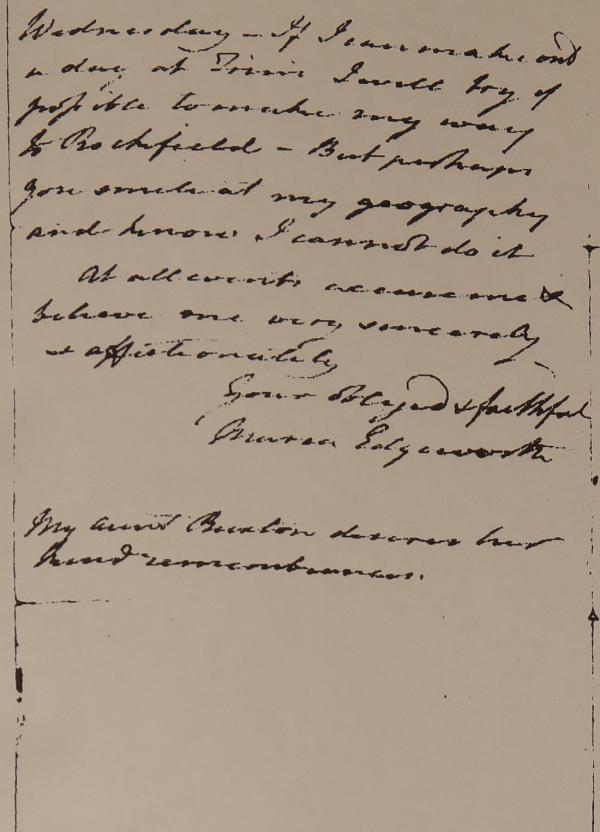 Wednesday – If I can make out
a day at Trim I will try if
possible to make my way
to Rochfield – But perhaps
you smile at my geography
and know I cannot do it
At all events excuse me &
believe me very sincerely
& affectionately
Your obliged & faithful
Maria Edgeworth
My aunt Ruxton desires her
kind remembrances.